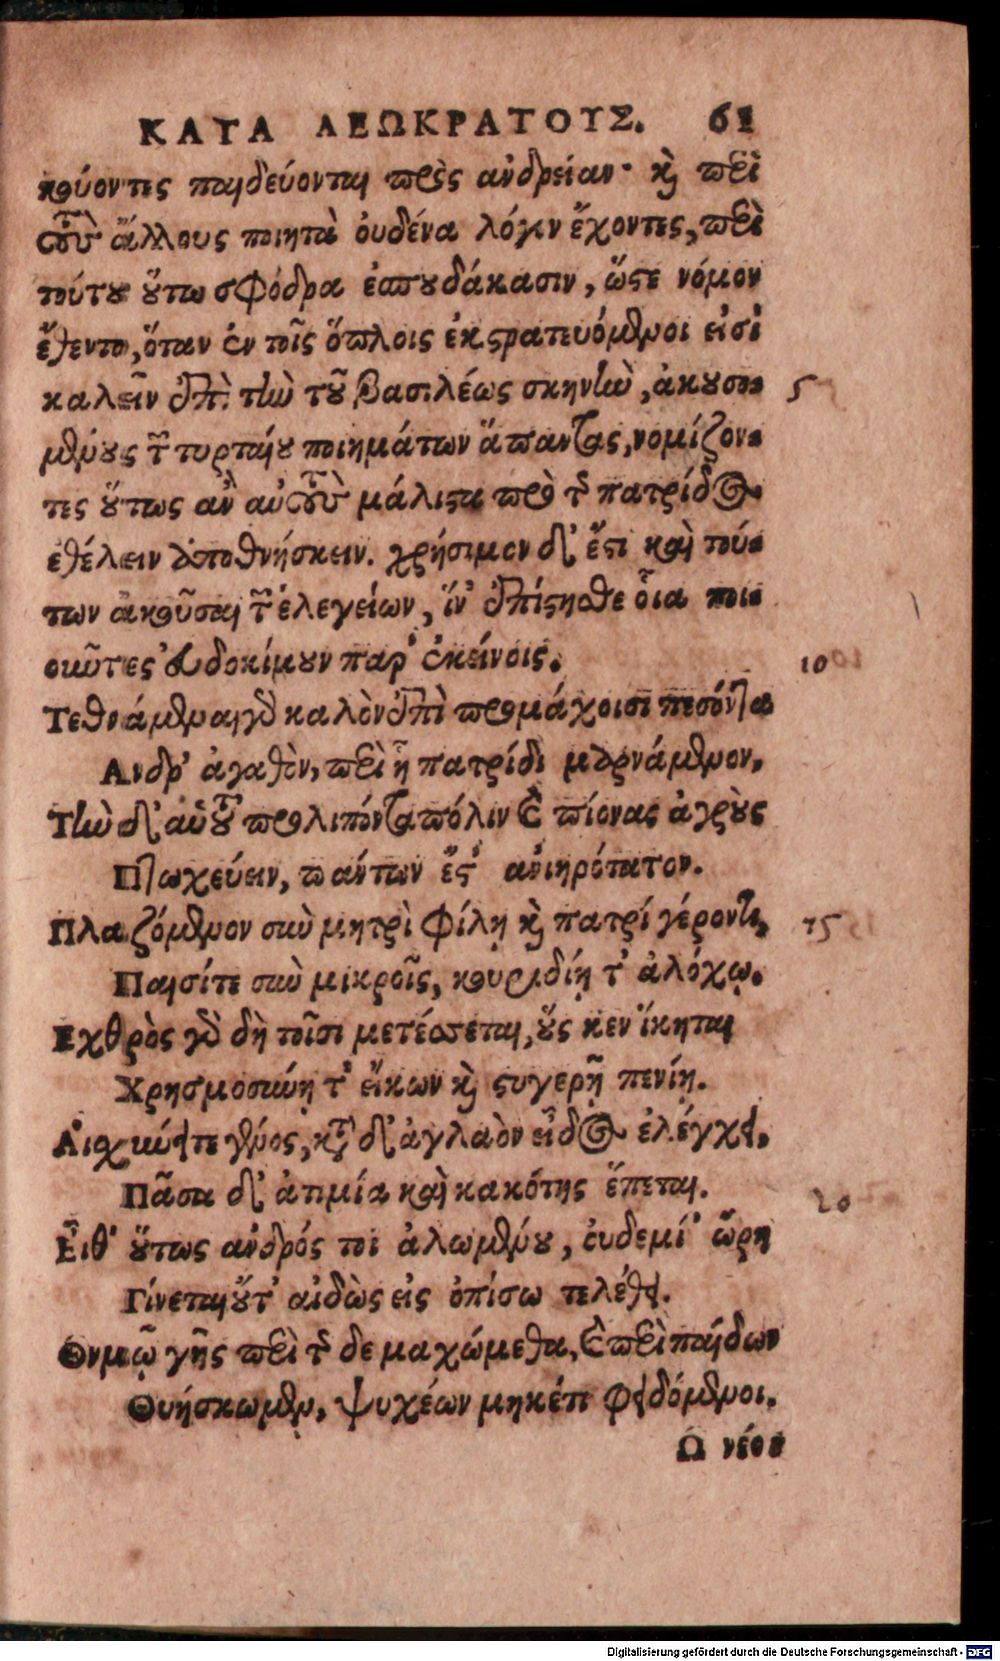 ΚΑΤΑ ΛΕΩΚΡΑΤΟΥΣ. 61
κούοντες παιδεύονται πρὸς ἀνδρείαν· καὶ περὶ
τοὺς ἄλλους ποιητὰς οὐδένα λόγον ἔχοντες, περὶ
τούτου οὕτω σφόδρα ἐσπουδάκασιν, ὥστε νόμον
ἔθεντο, ὅταν ἐν τοῖς ὅπλοις ἐκστρατευόμενοι εἰσὶ
καλεῖν ἐπὶ τὴν τοῦ βασιλέως σκηνὴν, ἀκουσο- 5
μένους τῶν τυρταίου ποιημάτων ἅπαντας, νομίζον-
τες οὕτως ἂν αὐτοὺς μάλιστα πρὸ τῆς πατρίδος
ἐθέλειν ἀποθνήσκειν. χρήσιμον δ' ἔστι καὶ τού-
των ἀκοῦσαι τῶν ἐλεγείων, ἵν' ἐπίστησθε οἷα ποι-
οῦντες εὐδοκίμουν παρ' ἐκείνοις. 10
Τεθνάμεναι γὰρ καλὸν ἐπὶ προμάχοισι πεσόντα
Ανδρ' ἀγαθὸν, περὶ ᾗ πατρίδι μαρνάμενον.
Τὴν δ' αὑτοῦ προλιπόντα πόλιν καὶ πίονας ἀγροὺς
Πτωχεύειν, πάντων ἔστ' ἀνιηρότατον.
Πλαζόμενον σὺν μητρὶ φίλῃ καὶ πατρί γέροντι, 15
Παισί τε σὺν μικροῖς, κουριδίῃ τ' ἀλόχῳ.
Εχθρὸς γὰρ δὴ τοῖσι μετέσσεται, οὕς κεν ἵκηται
Χρησμοσύνῃ τ' εἴκων καὶ στυγερῇ πενίῃ.
Αἰσχύνει τε γένος, κατὰ δ' ἀγλαὸν εἶδος ἐλέγχει,
Πᾶσα δ' ἀτιμία καὶ κακότης ἕπεται. 20
Εἶθ' οὕτως ἀνδρός τοι ἀλωμένου, οὐδεμί' ὥρη
Γίνεται οὔτ' αἰδὼς εἰς ὀπίσω τελέθει.
Θυμῷ γῆς περὶ τῆς δε μαχώμεθα, καὶ περὶ παίδων
Θνήσκωμεν, ψυχέων μηκέτι φειδόμενοι.
Ω νέοι
Digitalisierung gefördert durch die Deutsche Forschungsgemeinschaft - DFG